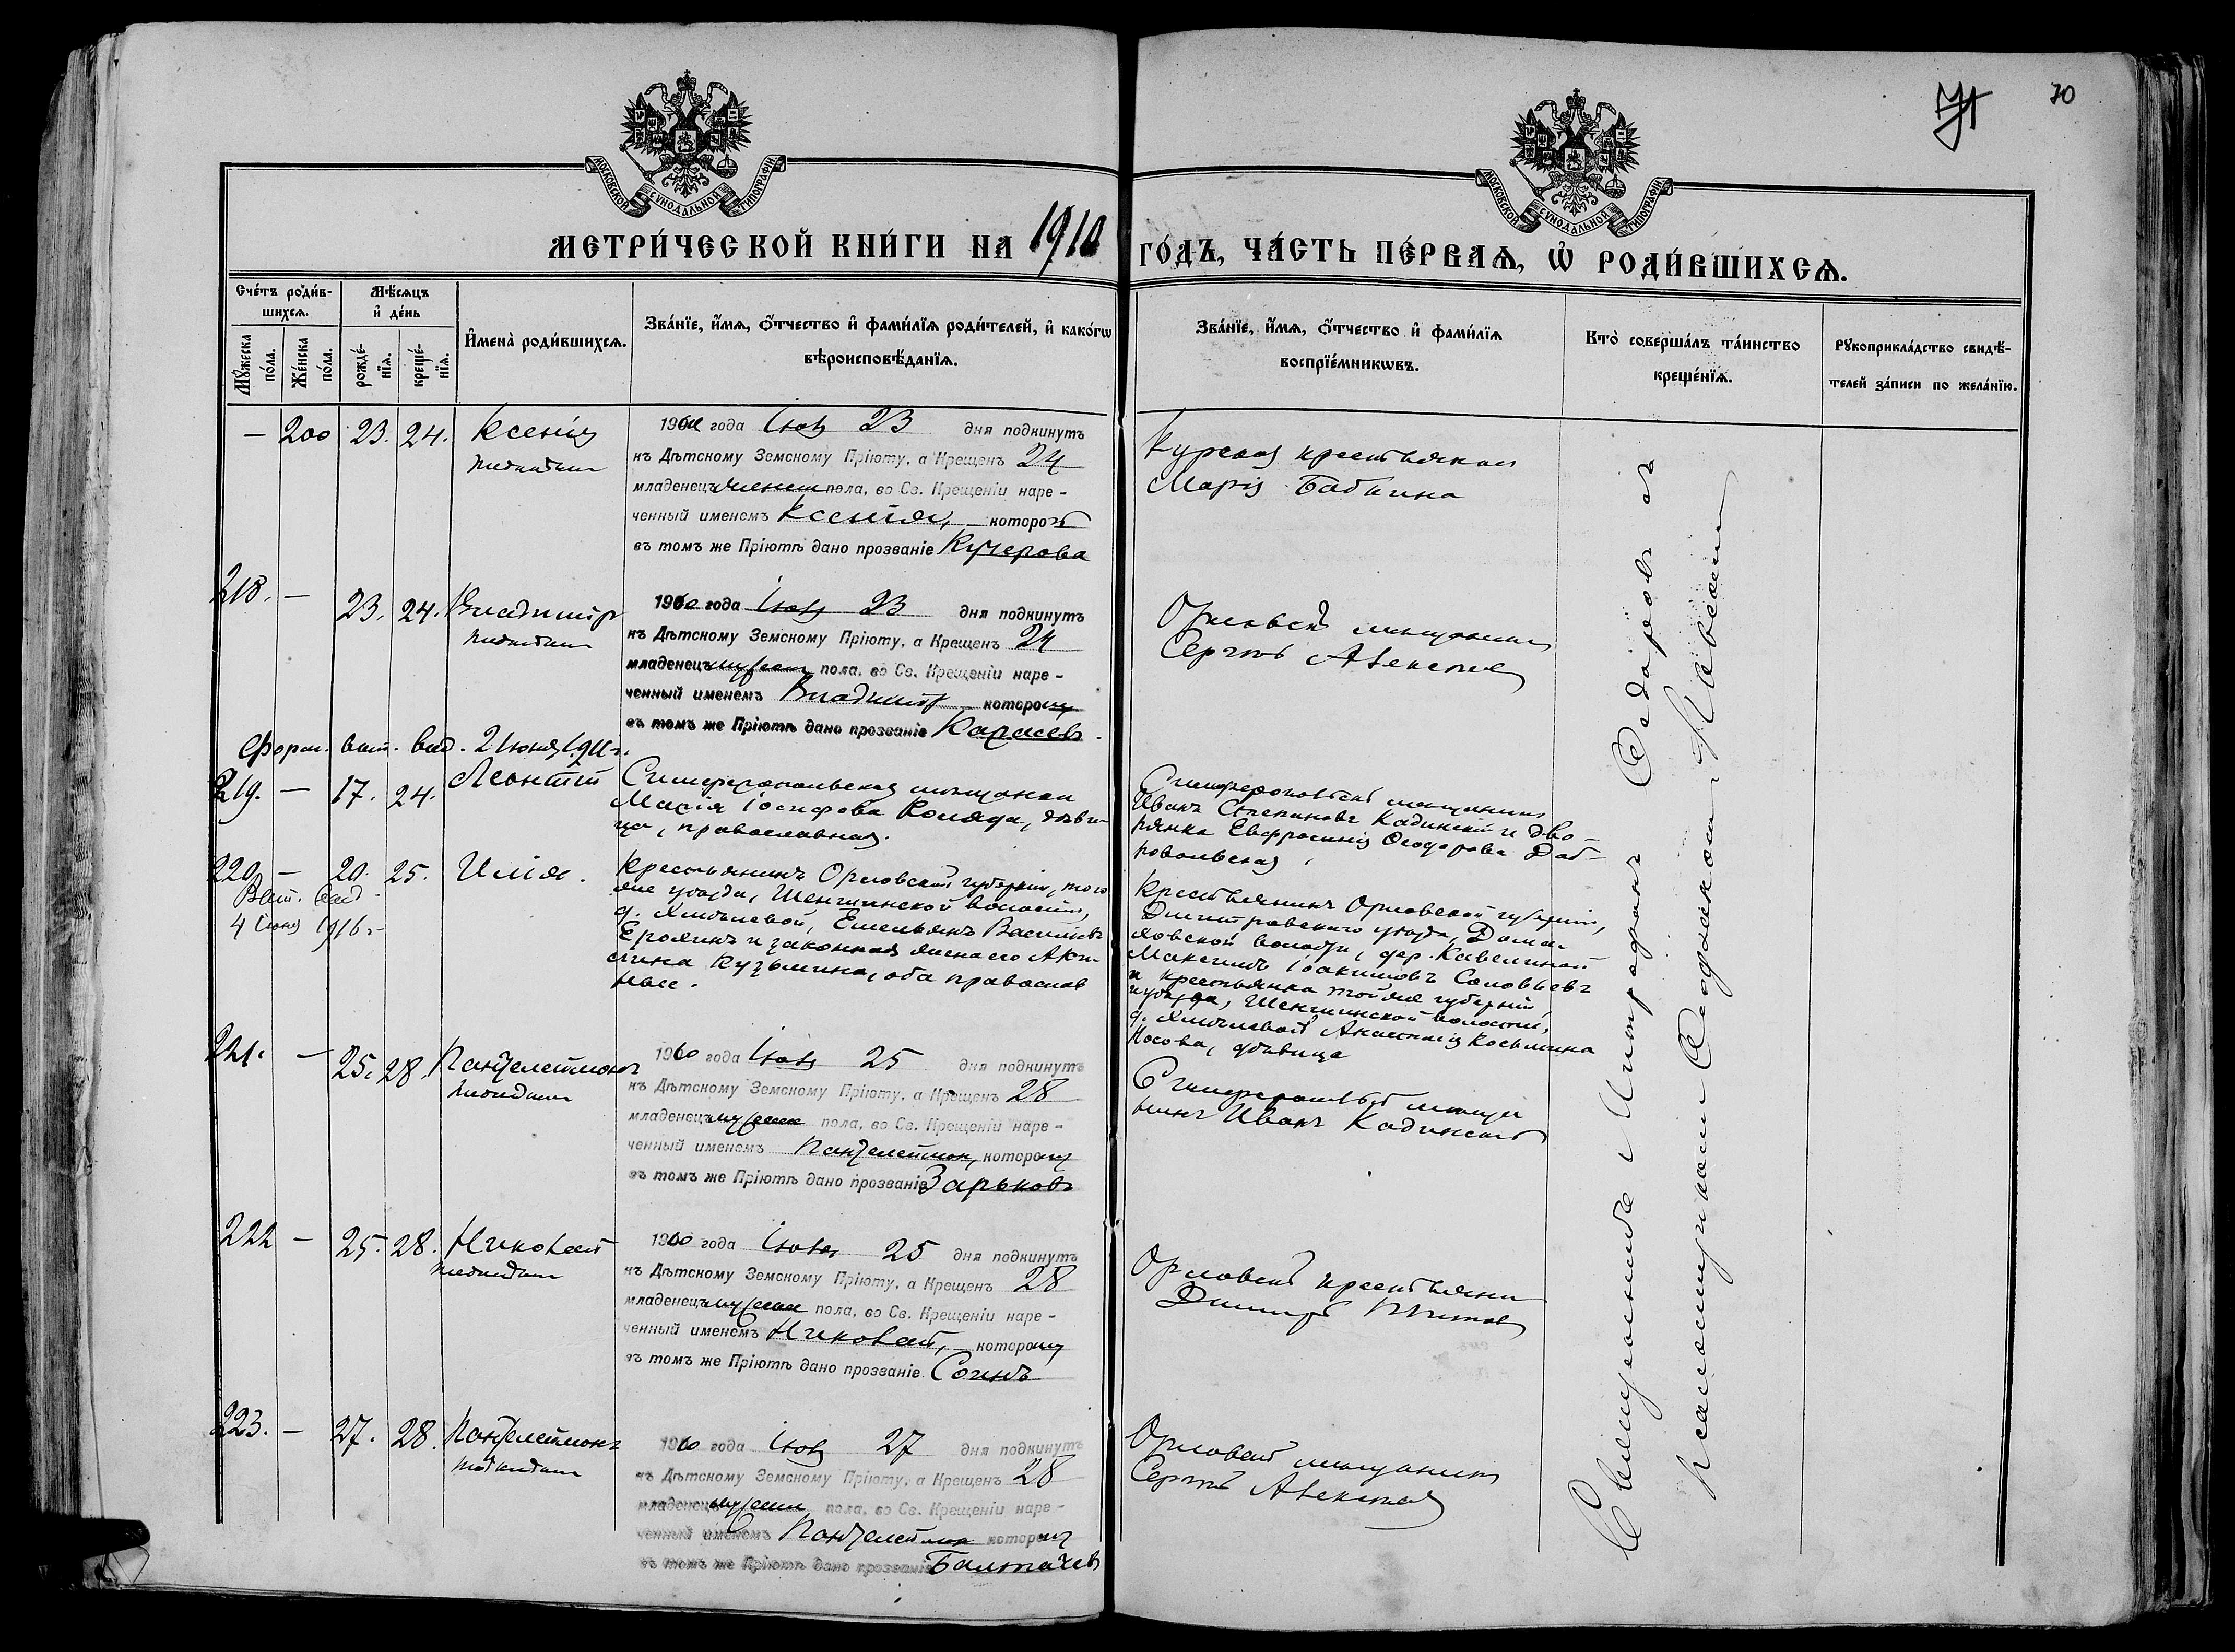 70
МОСКОВСКОЙ СѴНОДАЛЬНОЙ ТИПОГРАФІИ
МОСКОВСКОЙ СѴНОДАЛЬНОЙ ТИПОГРАФІИ
МЕТРИ́ЧЕСКОЙ КНИ́ГИ НА 1910 ГО́ДЪ, ЧА́СТЬ ПЕ́РВАѦ, Ѡ҆ РОДИ́ВШИХСѦ.
Сче́тъ роди́в-
шихсѧ.
Мѣ́сѧцъ
и҆ де́нь
Мꙋ́жеска по́ла.
Же́нска по́ла.
рожде́-нїѧ.
креще́-нїѧ.
И҆мена̀ роди́вшихсѧ.
Зва́нїе, и҆́мѧ, ѻ҆́тчество и҆ фами́лїѧ роди́телей, и҆ како́гѡ
вѣроисповѣ́данїѧ.
Зва́нїе, и҆́мѧ, ѻ҆́тчество и҆ фами́лїѧ
воспрїе́мникѡвъ.
Кто̀ соверша́лъ та́инство
креще́нїѧ.
Рꙋкоприкла́дство свидѣ́-
телей за́писи по жела́нїю.
— 200 23. 24. Ксенія
1910 года Іюля 23 дня подкинутъ
къ Дѣтскому Земскому Пріюту, а Крещенъ 24
младенецъ женск пола, во Св. Крещеніи наре-
ченный именемъ Ксенія, которой
въ томъ же Пріютѣ дано прозваніе Кучерова
Курская крестьянка
Марія Бабкина
218. — 23. 24. Владиміръ
1910 года Іюля 23 дня подкинутъ
къ Дѣтскому Земскому Пріюту, а Крещенъ 24
младенецъ мужеск пола, во Св. Крещеніи наре-
ченный именемъ Владимір которому
въ томъ же Пріютѣ дано прозваніе Карасевъ.
Орловскій мѣщанин
Сергѣй Алексеев
вып. выд. 2 Іюня 1911 г.
219. — 17. 24. Леонтій
Симферопольская мѣщанка
Марія Іосифова Коляда, дѣви-
ца, православная.
Симферопольскій мѣщанинъ
Иванъ Степановъ Кадинскій и Дво-
рянка Евфросинія Ѳеодорова Доб-
ровольская.
220. — 20. 25. Илія.
Вып. выд.
4 Іюня 1916 г.
Крестьянинъ Орловской губерніи, того
же уѣзда, Шеншинской волости,
д. Хмѣлевой, Емельянъ Васильевъ
Ерохинъ и законная жена его Аки-
лина Кузьмина, оба православ
ные.
Крестьянинъ Орловской губерніи,
Дмитровского уѣзда,
волости, дер.
Максимъ Іоакимовъ Соловьевъ
и крестьянка той же губерніи,
и уѣзда, Шеншинской волости,
д. Хмѣлевой Анастасія Косьмина
Носова, дѣвица
221. — 25. 28. Пантелеимонъ
1910 года Іюля 25 дня подкинутъ
къ Дѣтскому Земскому Пріюту, а Крещенъ 28
младенецъ мужеск пола, во Св. Крещеніи наре-
ченный именемъ Пантелеимон, которому
въ томъ же Пріютѣ дано прозваніе Зарьковъ
Симферопольскій мѣща
нинъ Иванъ Кадинскій
222 — 25. 28. Николай
1910 года Іюля 25 дня подкинутъ
къ Дѣтскому Земскому Пріюту, а Крещенъ 28
младенецъ мужеск пола, во Св. Крещеніи наре-
ченный именемъ Николай, которому
въ томъ же Пріютѣ дано прозваніе Сочнъ
Орловскій крестьянин
Димитрій Титов
223. — 27. 28. Пантелеимонъ
1910 года Іюля 27 дня подкинутъ
къ Дѣтскому Земскому Пріюту, а Крещенъ 28
младенецъ мужеск пола, во Св. Крещеніи наре-
ченный именемъ Пантелеимон которому
въ томъ же Пріютѣ дано прозваніе Балтачев
Орловскій мѣщанинъ
Сергѣй Алексеев
Священникъ Митрофанъ Ѳедоровъ съ
псаломщикомъ